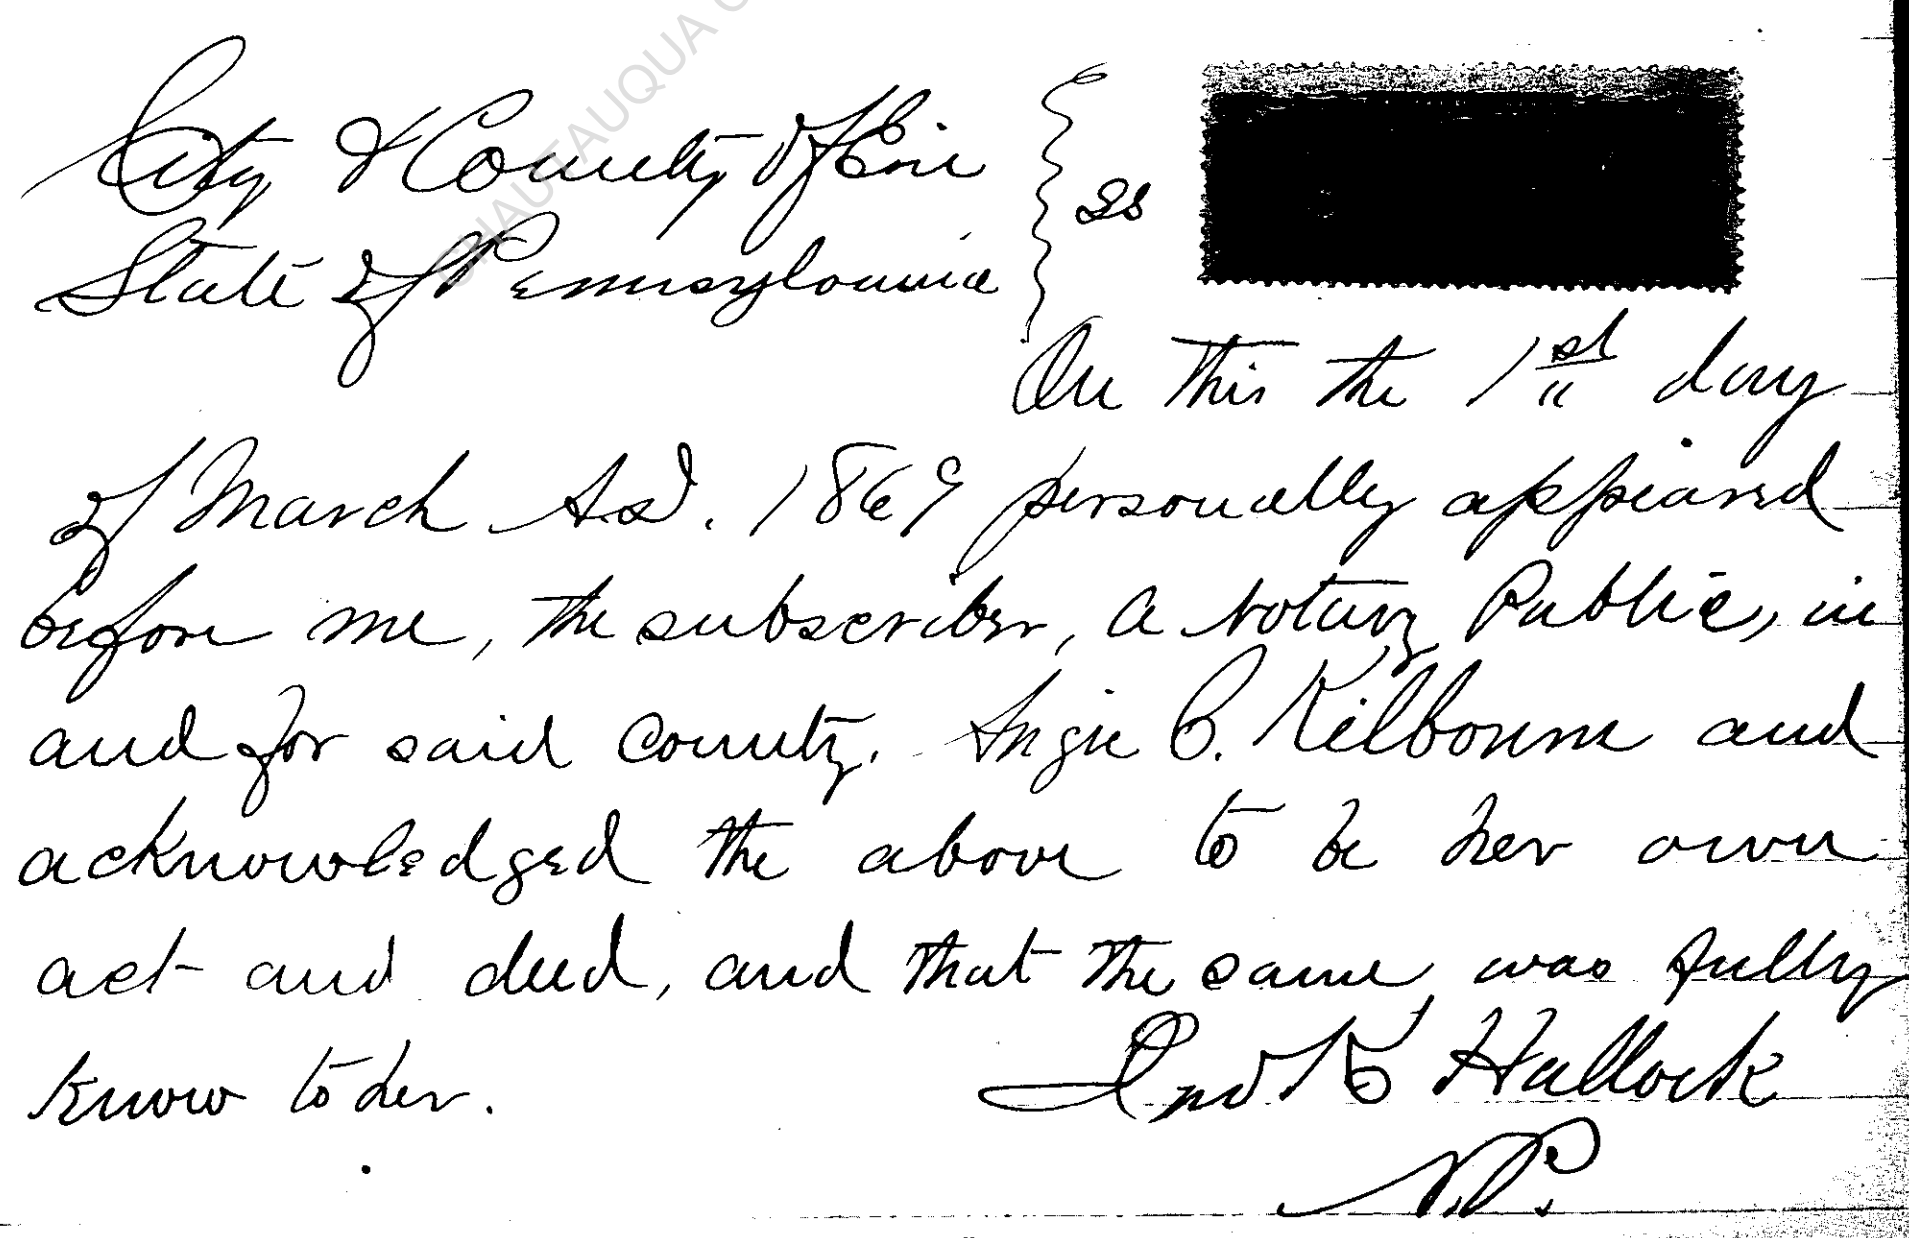 CHAUTAUQUA
City & County of Erie
State of Pennsylvania } ss
On this the 1st day
of March A.D. 1869 personally appeared
before me, the subscriber, a Notary Public, in
and for said County. Angie C. Kilbourne and
acknowledged the above to be her own
act and deed, and that the same was fully
know to her.
Jno K Hallock
N.P.